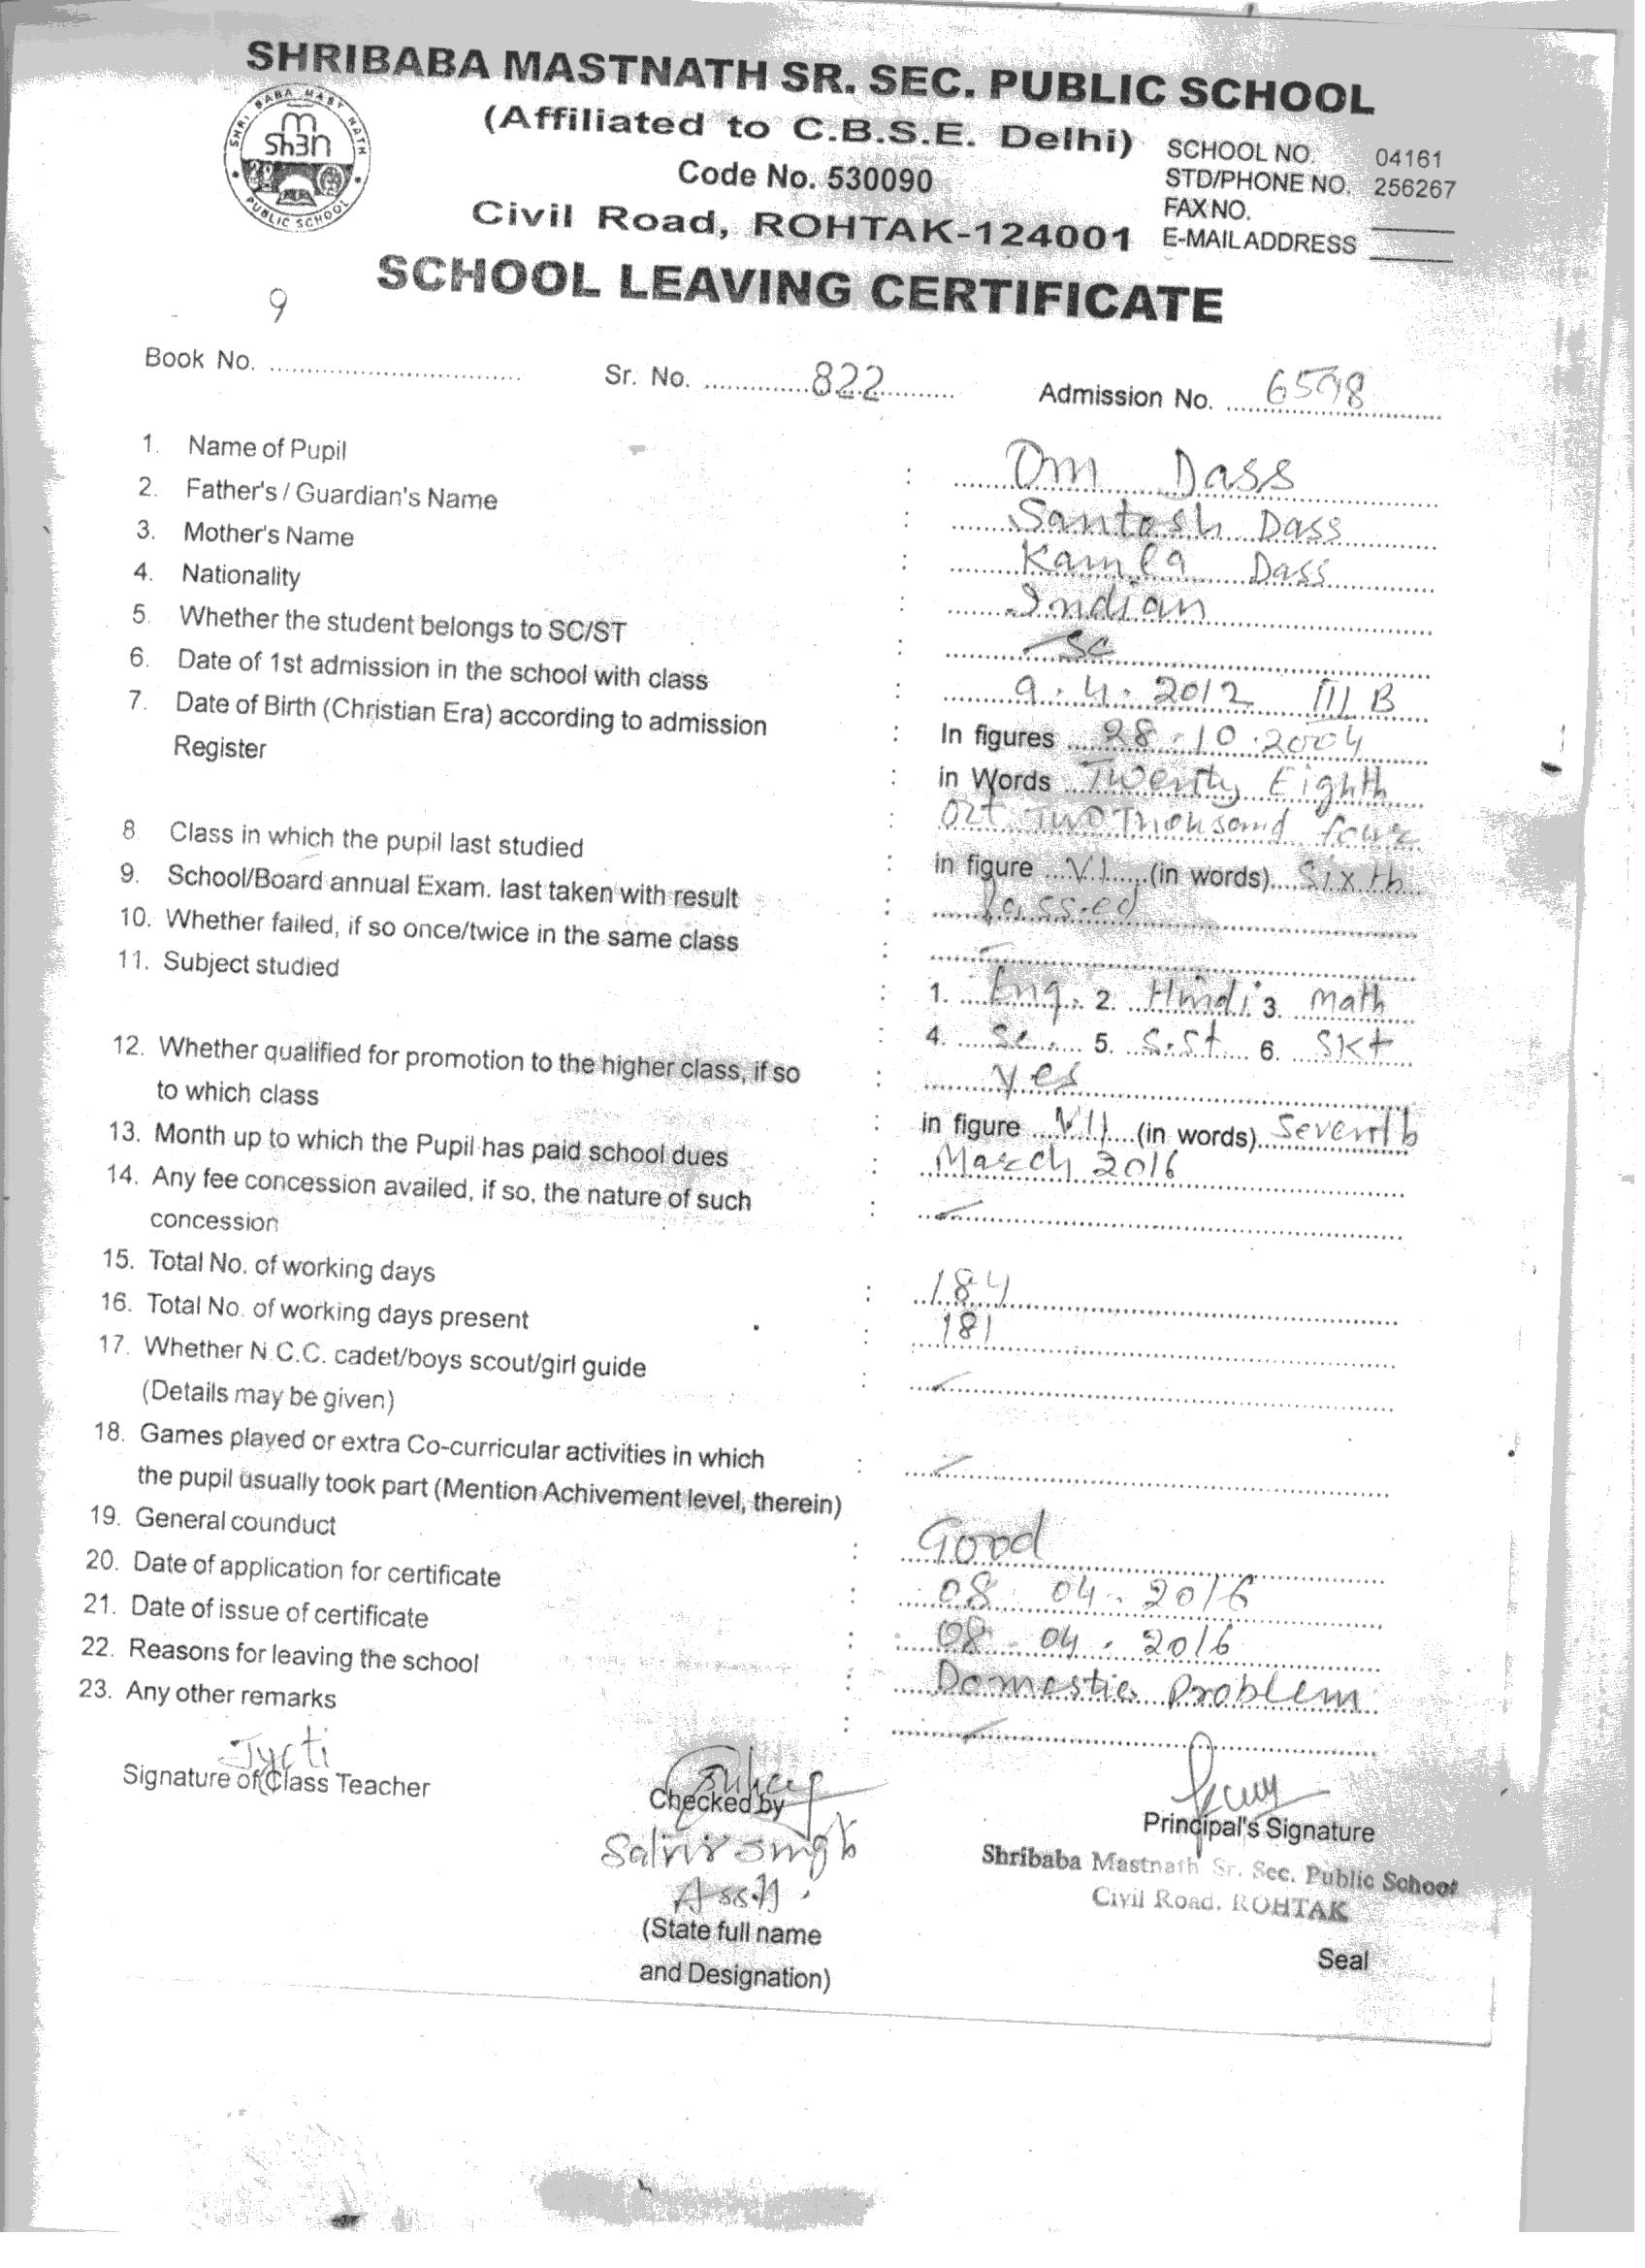 SHRIBABA MASTNATH SR. SEC. PUBLIC SCHOOL
(Affiliated to C.B.S.E. Delhi)
SHRI BABA MAST NATH
PUBLIC SCHOOL
Code No. 530090
Civil Road, ROHTAK-124001
SCHOOL NO. 04161
STD/PHONE NO. 256267
FAX NO.
E-MAIL ADDRESS
SCHOOL LEAVING CERTIFICATE
9
Book No. Sr. No. 822 Admission No. 6598
1. Name of Pupil : Om Dass
2. Father's / Guardian's Name : Santosh Dass
3. Mother's Name : Kamla Dass
4. Nationality : Indian
5. Whether the student belongs to SC/ST : SC
6. Date of 1st admission in the school with class : 9.4.2012 III B
7. Date of Birth (Christian Era) according to admission : In figures 28.10.2004
Register : in Words Twenty Eighth
: Oct Two Thousand four
8. Class in which the pupil last studied : in figure VI (in words) Sixth
9. School/Board annual Exam. last taken with result : Passed
10. Whether failed, if so once/twice in the same class : –
11. Subject studied : 1. Eng. 2. Hindi 3. Math
: 4. Sc. 5. S.St 6. Skt
12. Whether qualified for promotion to the higher class, if so : yes
to which class : in figure VII (in words) Seventh
13. Month up to which the Pupil has paid school dues : March 2016
14. Any fee concession availed, if so, the nature of such :
concession
15. Total No. of working days : 184
16. Total No. of working days present : 181
17. Whether N.C.C. cadet/boys scout/girl guide :
(Details may be given)
18. Games played or extra Co-curricular activities in which :
the pupil usually took part (Mention Achivement level, therein)
19. General counduct : Good
20. Date of application for certificate : 08.04.2016
21. Date of issue of certificate : 08.04.2016
22. Reasons for leaving the school : Domestic Problem
23. Any other remarks :
Jyoti
Signature of Class Teacher
Checked by
Principal's Signature
Singh
Shribaba Mastnath Sr. Sec. Public School
Civil Road, ROHTAK
(State full name
and Designation)
Seal